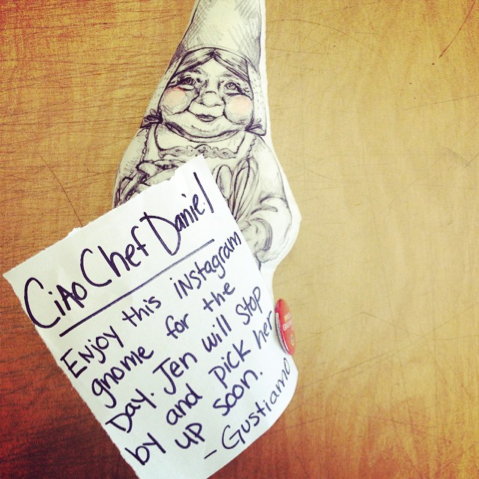 Ciao Chef Daniel
Enjoy this instagram
gnome for the
Day. Jen will stop
by and pick her
up soon.
- Gustiamo